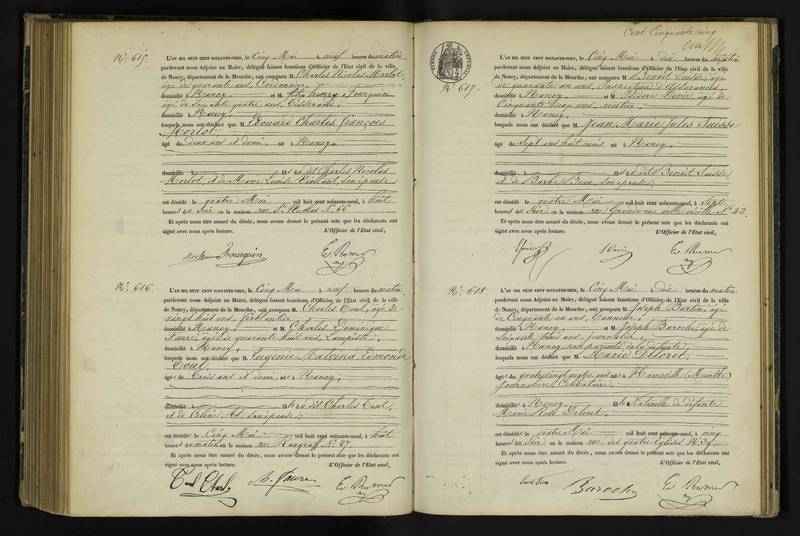 No. 615.
L'AN MIL HUIT CENT SOIXANTE-NEUF, le Cinq Mai à neuf heures du matin
pardevant nous Adjoint au Maire, délégué faisant fonctions d'Officier de l'Etat civil de la ville
de Nancy, département de la Meurthe, ont comparu M. Charles Nicolas Mortol,
âgé de quarante ans, Cordonnier,
domicilié à Nancy, et M. Bourquin
âgé de quatre ans, Tisserand,
domicilié à Nancy,
lesquels nous ont déclaré que M. Edouard Charles François
Mortol,
âgé de deux ans et demi, né à Nancy,
domicilié à fils du dit Charles Nicolas
Mortol, et de Marie Louise son épouse
est décédé le quatre Mai mil huit cent soixante-neuf, à huit
heures du soir en la maison rue St. Nicolas No. 66.
Et après nous être assuré du décès, nous avons dressé le présent acte que les déclarants ont
signé avec nous après lecture. L'Officier de l'Etat civil,
Bourquin
No. 616.
L'AN MIL HUIT CENT SOIXANTE-NEUF, le Cinq Mai à neuf heures du matin
pardevant nous Adjoint au Maire, délégué faisant fonctions d'Officier de l'Etat civil de la ville
de Nancy, département de la Meurthe, ont comparu M. Charles Toul, âgé de
vingt huit ans, ferblantier,
domicilié à Nancy, et M. Charles Dominique
Faure, âgé de quarante huit ans, Lampiste,
domicilié à Nancy,
lesquels nous ont déclaré que M. Eugénie Malvina Edmonde
Toul,
âgée de trois ans et demi, née à Nancy,
domicilié à fille du dit Charles Toul,
et de Céline son épouse,
est décédée le Cinq Mai mil huit cent soixante-neuf, à huit
heures du matin en la maison rue No. 37.
Et après nous être assuré du décès, nous avons dressé le présent acte que les déclarants ont
signé avec nous après lecture. L'Officier de l'Etat civil,
Toul Charles Faure
Cent Cinquante cinq
No. 617.
L'AN MIL HUIT CENT SOIXANTE-NEUF, le Cinq Mai à dix heures du matin
pardevant nous Adjoint au Maire, délégué faisant fonctions d'Officier de l'Etat civil de la ville
de Nancy, département de la Meurthe, ont comparu M. Benoit Suisse, âgé
de quarante un ans, Inspecteur d'Assurances,
domicilié à Nancy, et M. âgé de
Cinquante ans, rentier,
domicilié à Nancy,
lesquels nous ont déclaré que M. Jean Marie Jules Suisse
âgé de Sept ans huit mois né à Nancy,
domicilié à fils du dit Benoit Suisse
et de Barbe son épouse,
est décédé le quatre Mai mil huit cent soixante-neuf, à Sept
heures du soir en la maison rue Grande rue ville vieille No. 43.
Et après nous être assuré du décès, nous avons dressé le présent acte que les déclarants ont
signé avec nous après lecture. L'Officier de l'Etat civil,
No. 618.
L'AN MIL HUIT CENT SOIXANTE-NEUF, le Cinq Mai à dix heures du matin
pardevant nous Adjoint au Maire, délégué faisant fonctions d'Officier de l'Etat civil de la ville
de Nancy, département de la Meurthe, ont comparu M. Joseph âgé
de Cinquante ans, Tanneur,
domicilié à Nancy, et M. Joseph Baroche, âgé de
Soixante ans, Journalier,
domicilié à Nancy, non parents de la défunte,
lesquels nous ont déclaré que M. Marie Deloret,
âgée de quatre vingt quatre ans née à (Meurthe)
Journalière, Célibataire,
domicilié à Nancy, fille Naturelle de défunte
Marie Rose Deloret,
est décédée le quatre Mai mil huit cent soixante-neuf, à cinq
heures du soir en la maison rue des quatre Eglises No. 37.
Et après nous être assuré du décès, nous avons dressé le présent acte que les déclarants ont
signé avec nous après lecture. L'Officier de l'Etat civil,
Baroche